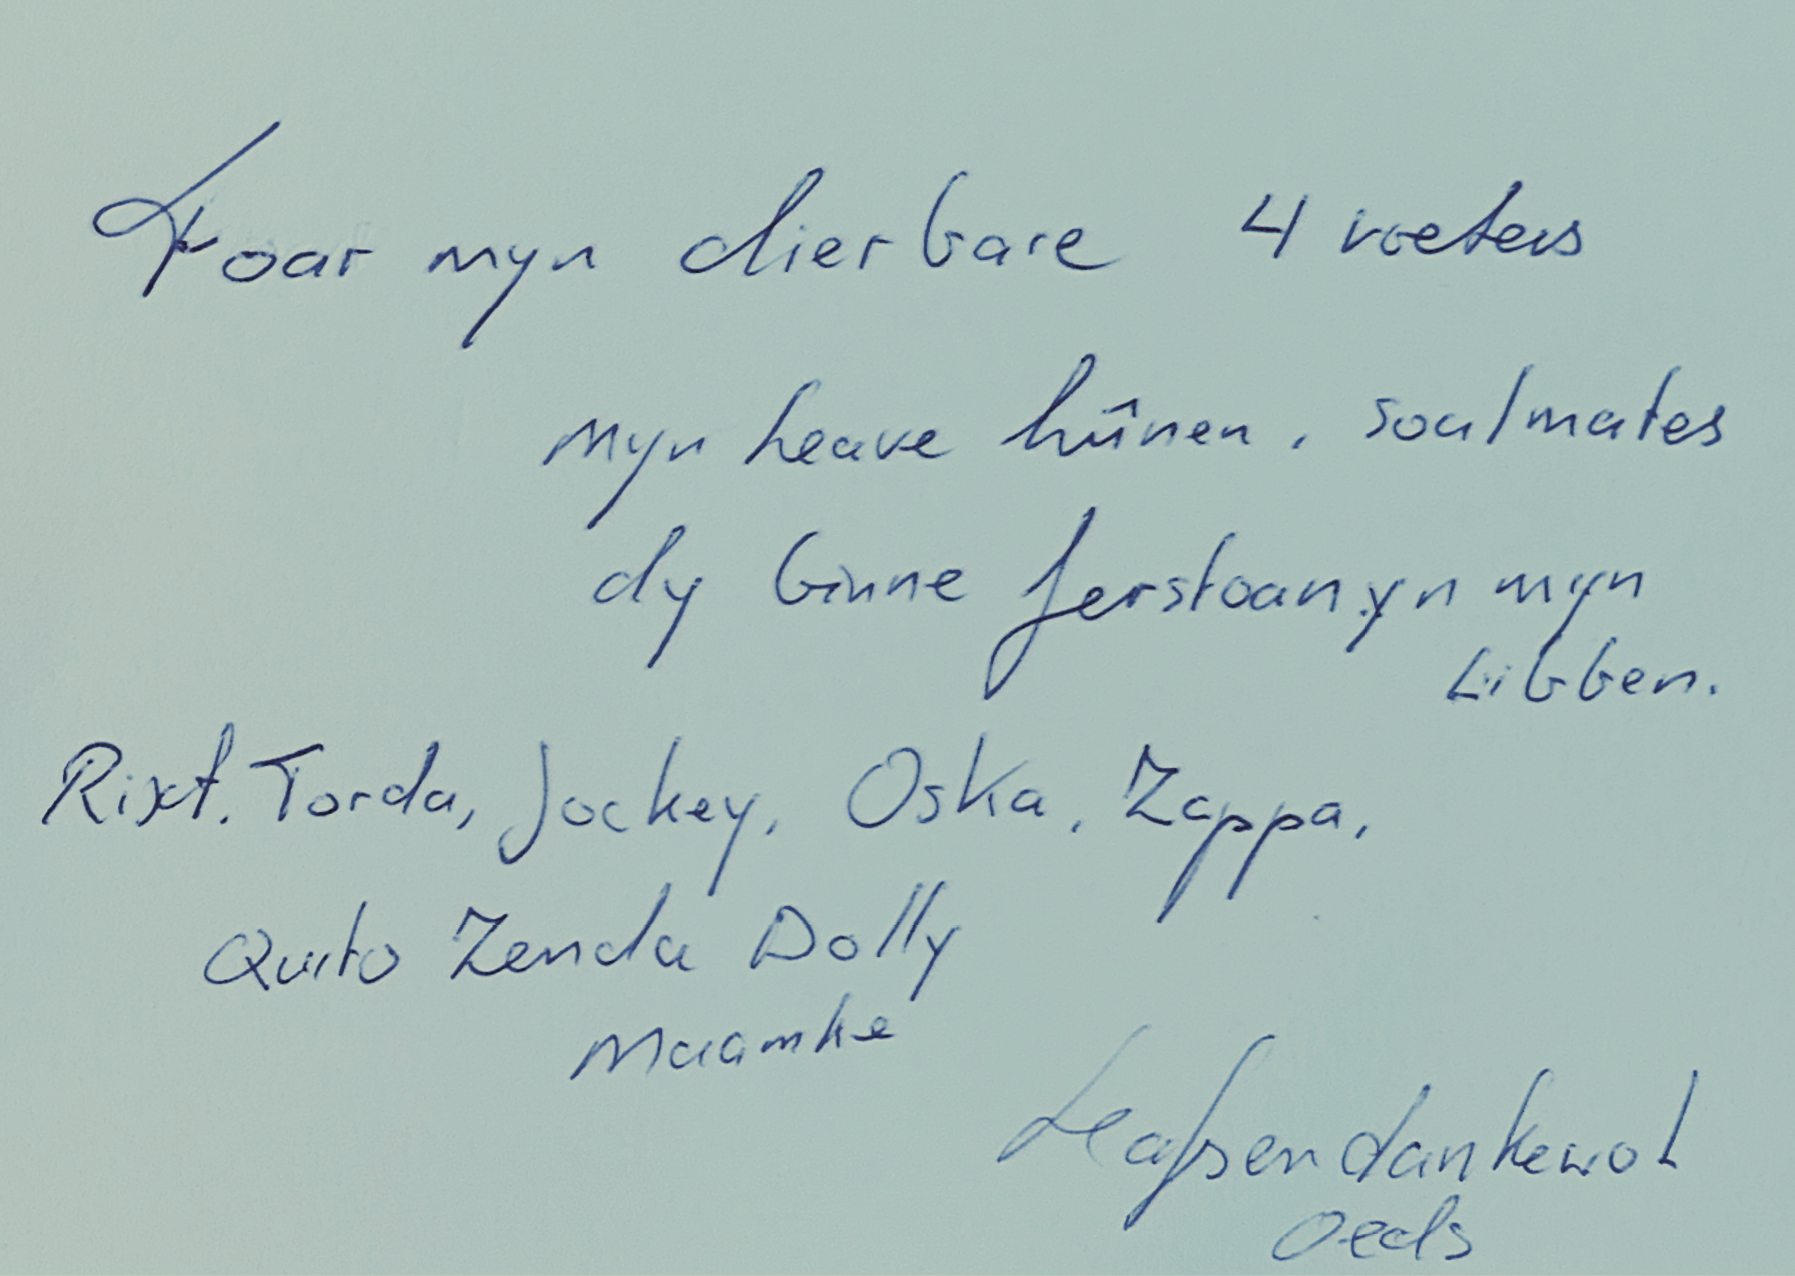 Foar myn dierbare 4 voeters
myn leave hûnen, soulmates
dy binne ferstoan yn myn
Libben.
Rixt, Torda, Jockey, Oska, Zappa,
Quito Zenda Dolly
Maamke
Leafsen dankewol
Oeds